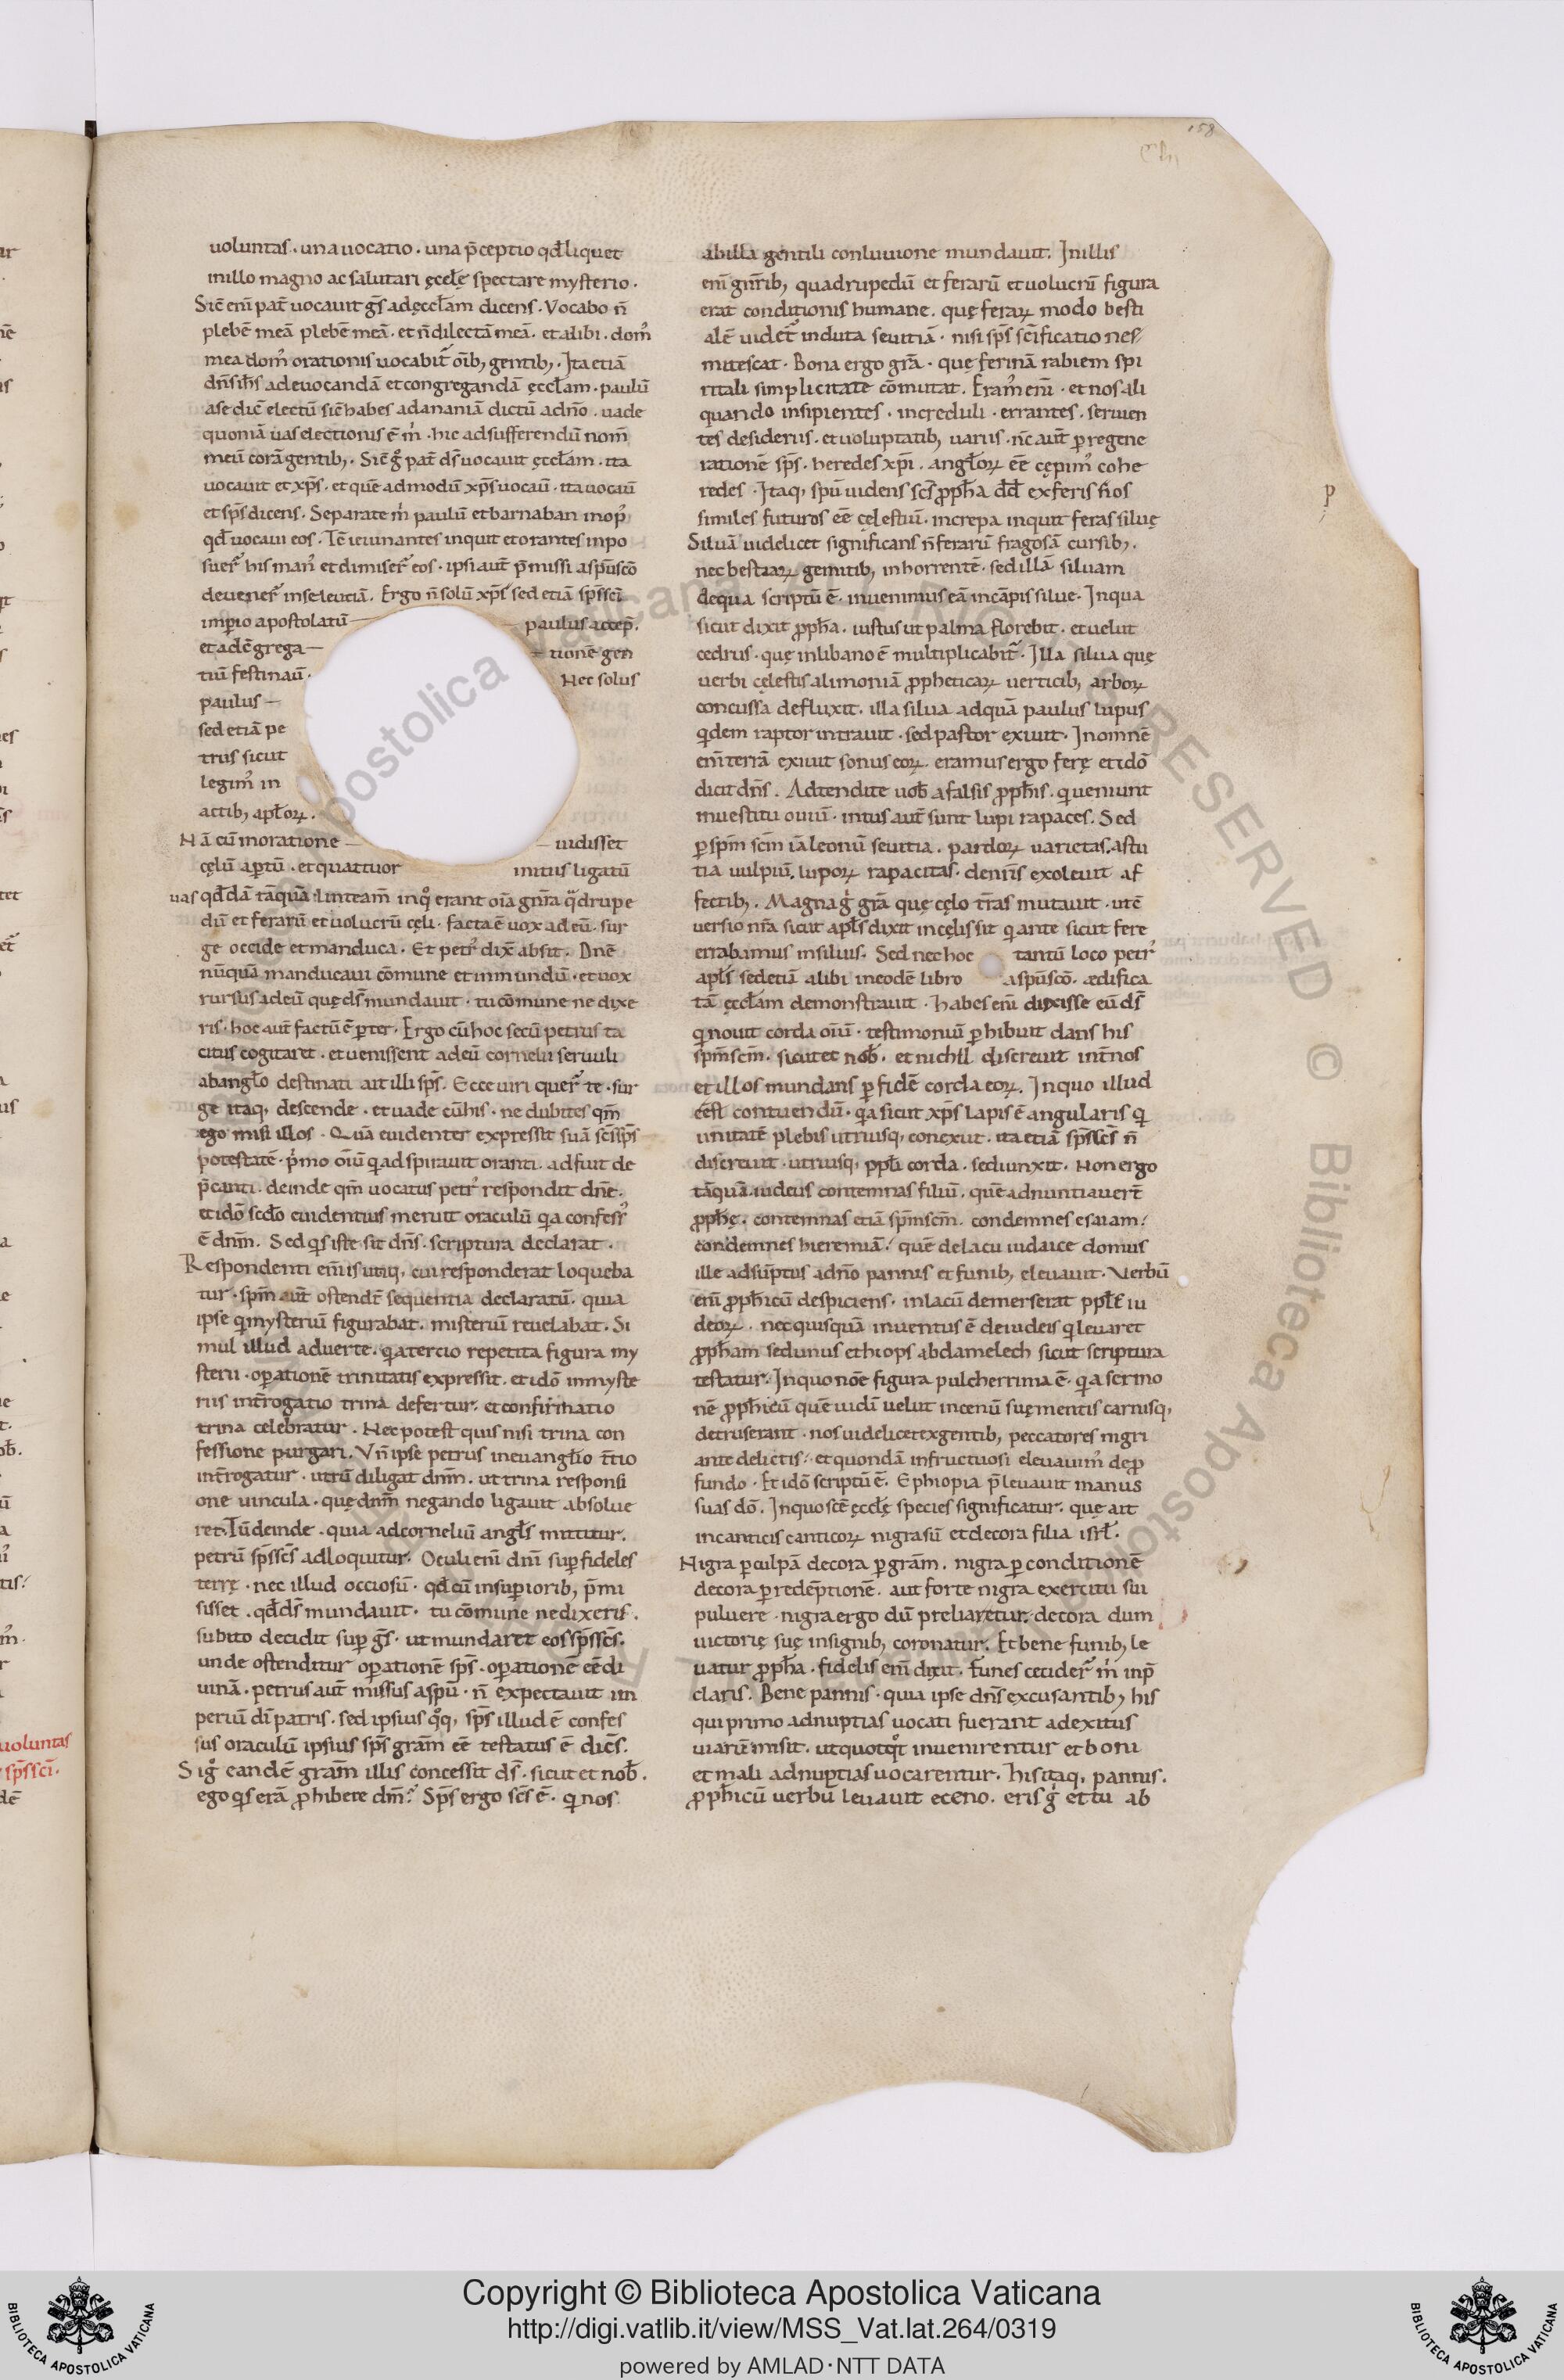 158
uoluntas. una uocatio. una p̄ceptio qđ liquet
in illo magno ac salutari ęccl̄ę spectare mysterio.
Sic̄ eni̅ pat̄ uocauit gs̄ ad ęccl̄am dicens. Vocabo n̄
plebe̅ mea̅ plebe̅ mea̅. et n̄ dilecta̅ mea̅. et alibi. dom᾽
mea dom᾽ orationis uocabit᾽ oi̅b; gentib;. Ita etia̅
dn̄s ih̄s ad euocanda̅ et congreganda̅ ęccl̄am. paulu̅
a se dic̄ electu̅ sic̄ habes ad anania̅ dictu̅ a dn̄o. uade
quonia̅ uas electionis ē m̍. hic ad sufferendu̅ nom̄
meu̅ cora̅ gentib;. Sic̄ g̊ pat̄ ds̄ uocauit ęccl̄am. ita
uocauit et xp̄s. et que̅ admodu̅ xp̄s uocau̅. ita uocau̅
et sp̄s dicens. Separate m̍ paulu̅ et barnaban in op᾽
qđ uocaui eos. Te̅ ieiunantes inquit et orantes inpo
suer᾽ his man᾽ et dimiser᾽ eos. ipsi aut̄ p̄missi a spu̅ sc̄o
deuener᾽ in seleutia̅. Ergo n̄ solu̅ xp̄s sed etia̅ sp̄s sc̄i
imp̱io apostolatu̅ — paulus accep̄.
et ad e̅ grega — tione̅ gen
tiu̅ festinau̅. Nec solus
paulus —
sed etia̅ pe
trus sicut
legim᾽ in
actib; apl̄oꝝ.
Na̅ cu̅ in oratione — uidisset
cęlu̅ ap̱tu̅. et quattuor initiis ligatu̅
uas qđda̅ ta̅qua̅ linteam̄ in q̊ erant oi̅a gn̄ra qᵃdrupe
du̅ et feraru̅ et uolucru̅ cęli. facta ē uox ad eu̅. sur
ge occide et manduca. Et petr᾽ dix̄ absit. Dn̄e
nu̅qua̅ manducaui co̅mune et inmundu̅. et uox
rursus ad eu̅ quę ds̄ mundauit. tu co̅mune ne dixe
ris. hoc aut̄ factu̅ ē p̱ ter. Ergo cu̅ hoc secu̅ petrus ta
citus cogitaret. et uenissent ad eu̅ cornelii seruuli
ab angl̄o destinati ait illi sp̄s. Ecce uiri quer᾽ te. sur
ge itaq; descende. et uade cu̅ his. ne dubites qm̄
ego misi illos. Qua̅ euidenter expressit sua̅ sc̄s sp̄s
potestate̅. p̍mo oi̅u̅ qi adspirauit oranti. adfuit de
p̄canti. deinde qm̄ uocatus petr᾽ respondit dn̄e.
et ido̅ scđo euidentius meruit oraculu̅ qa confess᾽
ē dnm̄. Sed qs iste sit dn̄s. scriptura declarat.
Respondenti em̄ is utiq; cui responderat loqueba
tur. spm̄ aut̄ ostendt̄ sequentia declaratu̅. quia
ipse qi mysteriu̅ figurabat. misteriu̅ reuelabat. Si
mul illud aduerte. qa tercio repetita figura my
sterii. op̱atione̅ trinitatis expressit. et ido̅ in myste
riis int̄rogatio trina defertur. et confirmatio
trina celebratur. Nec potest quis nisi trina con
fessione purgari. Vn̄ ipse petrus in euanglio t̄tio
int̄rogatur. utru̅ diligat dnm̄. ut trina responsi
one uincula. quę dnm̄ negando ligauit absolue
ret. Tu̅ deinde. quia ad corneliu̅ angl̄s mittitur.
petru̅ sp̄s sc̄s adloquitur. Oculi eni̅ dnī sup̱ fideles
terrę. nec illud occiosu̅. qđ cu̅ in sup̱iorib; p̄mi
sisset. qđ ds̄ mundauit. tu co̅mune ne dixeris.
subito decidit sup̱ gs̄. ut mundaret eos sp̄s sc̄s.
unde ostenditur op̱atione̅ sp̄s. op̱atione̅ ee̅ di
uina̅. petrus aut̄ missus a spu̅. n̄ expectauit im
periu̅ dī patris. sed ipsius q̊q; sp̄s illud ē confes
sus oraculu̅ ipsius sp̄s gra̅m ee̅ testatus ē dic̄s.
Si g̊ eande̅ gra̅m illis concessit ds̄. sicut et nob̄.
ego qs era̅ ꝓhibere dm̄? Sp̄s ergo sc̄s ē. qi nos
ab illa gentili conluuione mundauit. In illis
eni̅ gn̄rib; quadrupedu̅ et feraru̅ et uolucru̅ figura
erat conditionis humane. quę feraꝝ modo besti
ale̅ uidet᾽ induta seuitia̅. nisi sp̄s sc̄ificatione
mitescat. Bona ergo gra̅. quę ferina̅ rabiem spi
ritali simplicitate co̅mutat. Eram᾽ eni̅. et nos ali
quando insipientes. increduli. errantes. seruien
tes desideriis. et uoluptatib; uariis. nc̄ aut̄ p̱ regene
ratione̅ sp̄s. heredes xp̄i. angl̄oꝝ ee̅ cępim᾽ cohe
redes. Itaq; spu̅ uidens sc̄s ꝓph̄a dđ ex feris n̄os
similes futuros ee̅ cęlestiu̅. increpa inquit feras siluę
Silua̅ uidelicet significans n̄ feraru̅ fragosa̅ cursib;.
nec bestiaꝝ gemitib; inhorrente̅. sed illa̅ siluam
de qua scriptu̅ ē. inuenimus ea̅ in ca̅pis silue. In qua
sicut dixit ꝓph̄a. iustus ut palma florebit. et uelut
cedrus. quę in libano ē multiplicabit᾽. Illa silua quę
uerbi cęlestis alimonia̅ ꝓpheticaꝝ uerticib; arboꝝ
concussa defluxit. illa silua ad qua̅ paulus lupus
qidem raptor intrauit. sed pastor exiuit. In omne̅
eni̅ terra̅ exiuit sonus eoꝝ. eramus ergo ferę et ido̅
dicit dn̄s. Adtendite uob̄ a falsis ꝓph̄is. qi ueniunt
in uestitu ouiu̅. intus aut̄ sunt lupi rapaces. Sed
p̱ spm̄ scm̄ ia̅ leonu̅ seuitia. pardoꝝ uarietas. astu
tia uulpiu̅. lupoꝝ rapacitas. de nr̄is exoleuit af
fectib;. Magna g̊ gra̅ quę cęlo tr̄as mutauit. ut c̄
uersio nr̄a sicut apl̄s dixit in cęlis sit qi ante sicut fere
errabamus in siluis. Sed nec hoc tantu̅ loco petr᾽
apl̄s sed etia̅ alibi in eode̅ libro a spu̅ sc̄o. ædifica
ta̅ ęccl̄am demonstrauit. habes eni̅ dixisse eu̅ ds̄
qi nouit corda oi̅u̅. testimoniu̅ p̱hibuit dans his
spm̄ scm̄. sicut et nob̄. et nichil discreuit int̄ nos
et illos mundans p̱ fide̅ corda eoꝝ. In quo illud
ē contuendu̅. qa sicut xp̄s lapis ē angularis qi
unitate̅ plebis utriusq; conexuit. ita etia̅ sp̄s sc̄s n̄
discreuit. utriusq; ppl̄i corda. sed iunxit. Non ergo
ta̅qua̅ iudeus contemnas filiu̅. que̅ adnuntiauert̄
ꝓph̄ę. contemnas etia̅ spm̄ scm̄. condemnes esaiam?
condemnes hieremia̅? que̅ de lacu iudaice domus
ille adsu̅ptus a dn̄o pannis et funib; eleuauit. Verbu̅
eni̅ ꝓph̄icu̅ despiciens. in lacu̅ demerserat ppl̄s iu
deoꝝ. nec quisqua̅ inuentus ē de iudeis qi leuaret
ꝓph̄am sed unus ethiops abdamelech sicut scriptura
testatur. In quo no̅e figura pulcherrima ē. qa sermo
ne̅ ꝓph̄icu̅ que̅ iudī uelut in cenu̅ suę mentis carnisq;
detruserant. nos uidelicet ex gentib; peccatores nigri
ante delictis. et quonda̅ infructuosi eleuauim᾽ de ꝓ
fundo. Et ido̅ scriptu̅ ē. Ephiopia p̄leuauit manus
suas dō. In quo scē ęccl̄ę species significatur. quę ait
in canticis canticoꝝ nigra su̅ et decora filia isrl̄.
Nigra p̱ culpa̅ decora p̱ gra̅m. nigra p̱ conditione̅
decora p̱ rede̅ptione̅. aut forte nigra exercitu sui
puluere. nigra ergo du̅ preliaretur. decora dum
uictorię suę insignib; coronatur. Et bene funib; le
uatur ꝓph̄a. fidelis eni̅ dixit. Funes cecider᾽ m̍ in p̄
claris. Bene pannis. quia ipse dn̄s excusantib; his
qui primo ad nuptias uocati fuerant ad exitus
uiaru̅ misit. ut quotq̊t inuenirentur et boni
et mali ad nuptias uocarentur. his itaq; pannis.
ꝓph̄icu̅ uerbu̅ leuauit e ceno. eris g̊ et tu ab
uoluntas
sp̄s sc̄i.
Copyright © Biblioteca Apostolica Vaticana
http://digi.vatlib.it/view/MSS_Vat.lat.264/0319
powered by AMLAD · NTT DATA
BIBLIOTECA APOSTOLICA VATICANA
BIBLIOTECA APOSTOLICA VATICANA